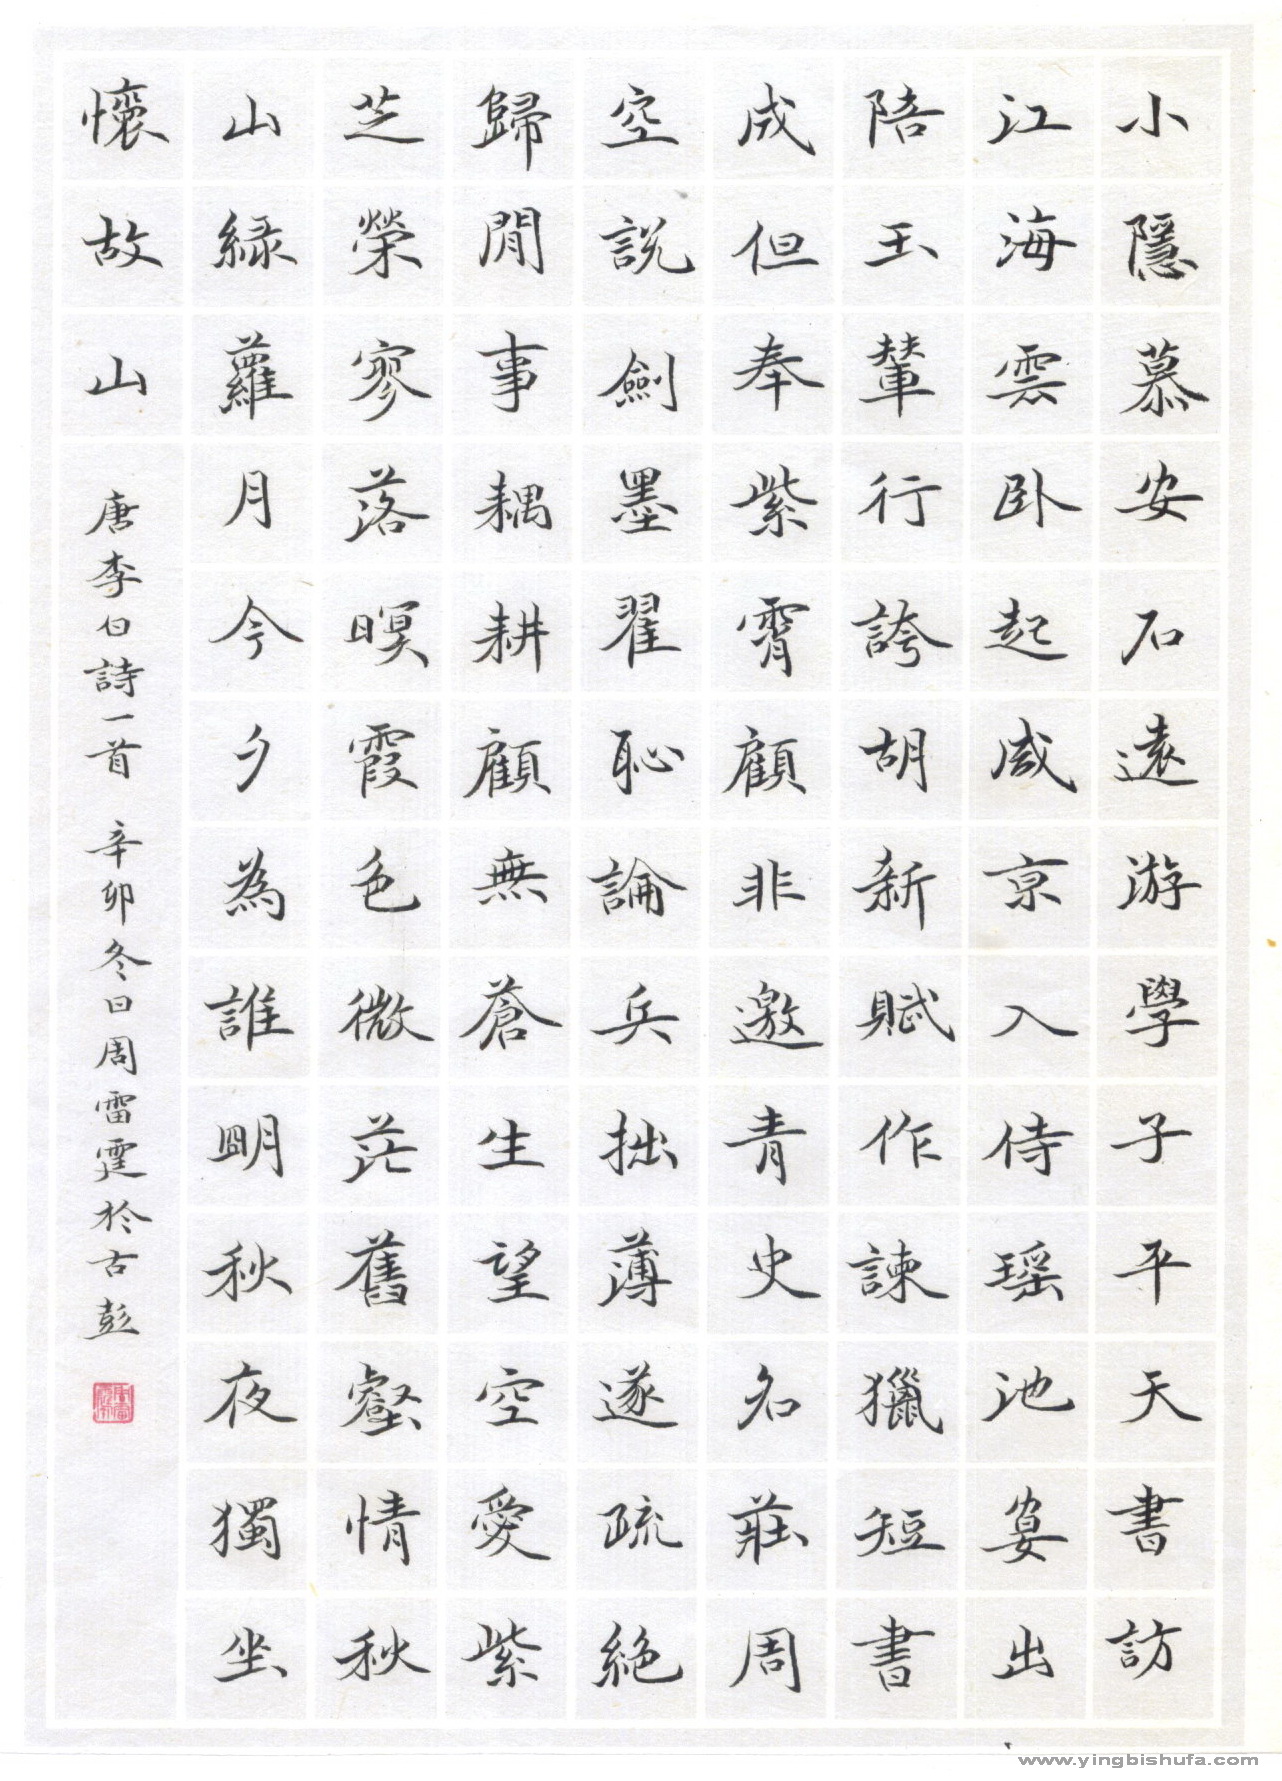 小隱慕安石遠游學子平天書訪
江海雲卧起咸京入侍瑶池宴出
陪玉輦行誇胡新賦作諫獵短書
成但奉紫霄顧非邀青史名莊周
空說劍墨翟恥論兵拙薄遂疏絕
歸閒事耦耕顧無蒼生望空愛紫
芝榮寥落暝霞色微茫舊壑情秋
山緑蘿月今夕為誰明秋夜獨坐
懷故山
唐李白詩一首 辛卯冬日周雷霆於古彭
www.yingbishufa.com